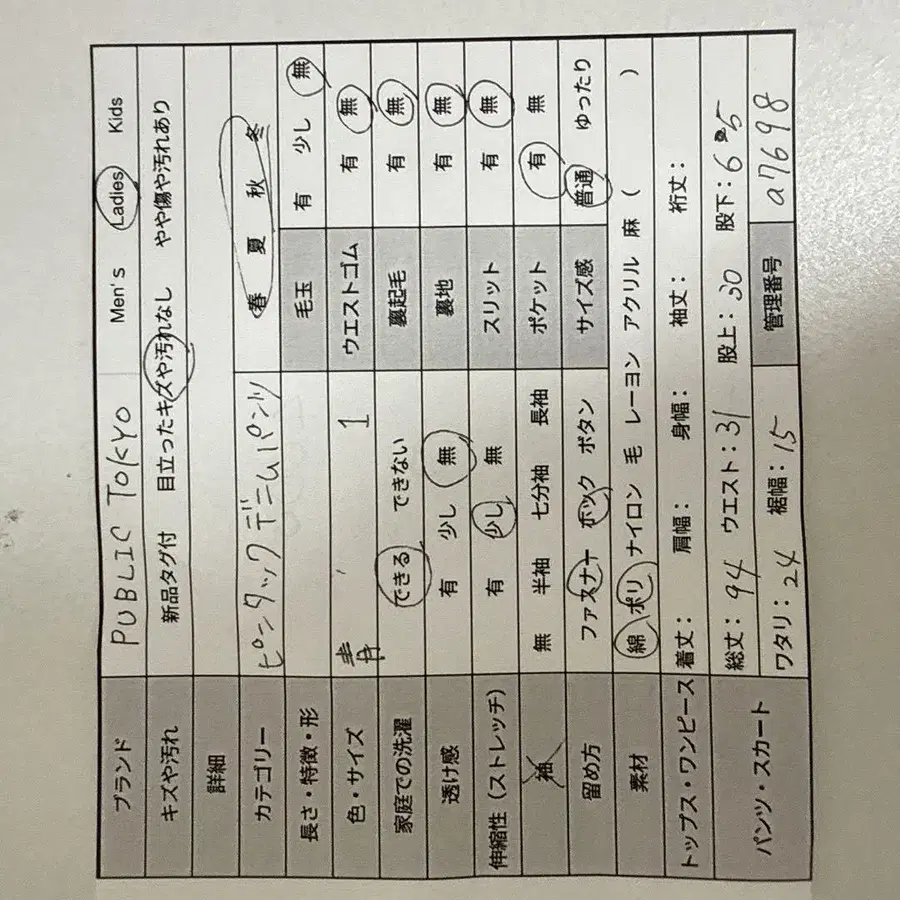 ブランド PUBLIC TOKYO Men's Ladies Kids
キズや汚れ 新品タグ付 目立ったキズや汚れなし やや傷や汚れあり
詳細
カテゴリー ピンタックデニムパンツ 春 夏 秋 冬
長さ・特徴・形 毛玉 有 少し 無
色・サイズ 青 1 ウエストゴム 有 無
家庭での洗濯 できる できない 裏起毛 有 無
透け感 有 少し 無 裏地 有 無
伸縮性（ストレッチ） 有 少し 無 スリット 有 無
袖 無 半袖 七分袖 長袖 ポケット 有 無
留め方 ファスナー ホック ボタン サイズ感 普通 ゆったり
素材 綿 ポリ ナイロン 毛 レーヨン アクリル 麻 （ ）
トップス・ワンピース 着丈： 肩幅： 身幅： 袖丈： 裄丈：
パンツ・スカート 総丈：94 ウエスト：31 股上：30 股下：65
ワタリ：24 裾幅：15 管理番号 a7698